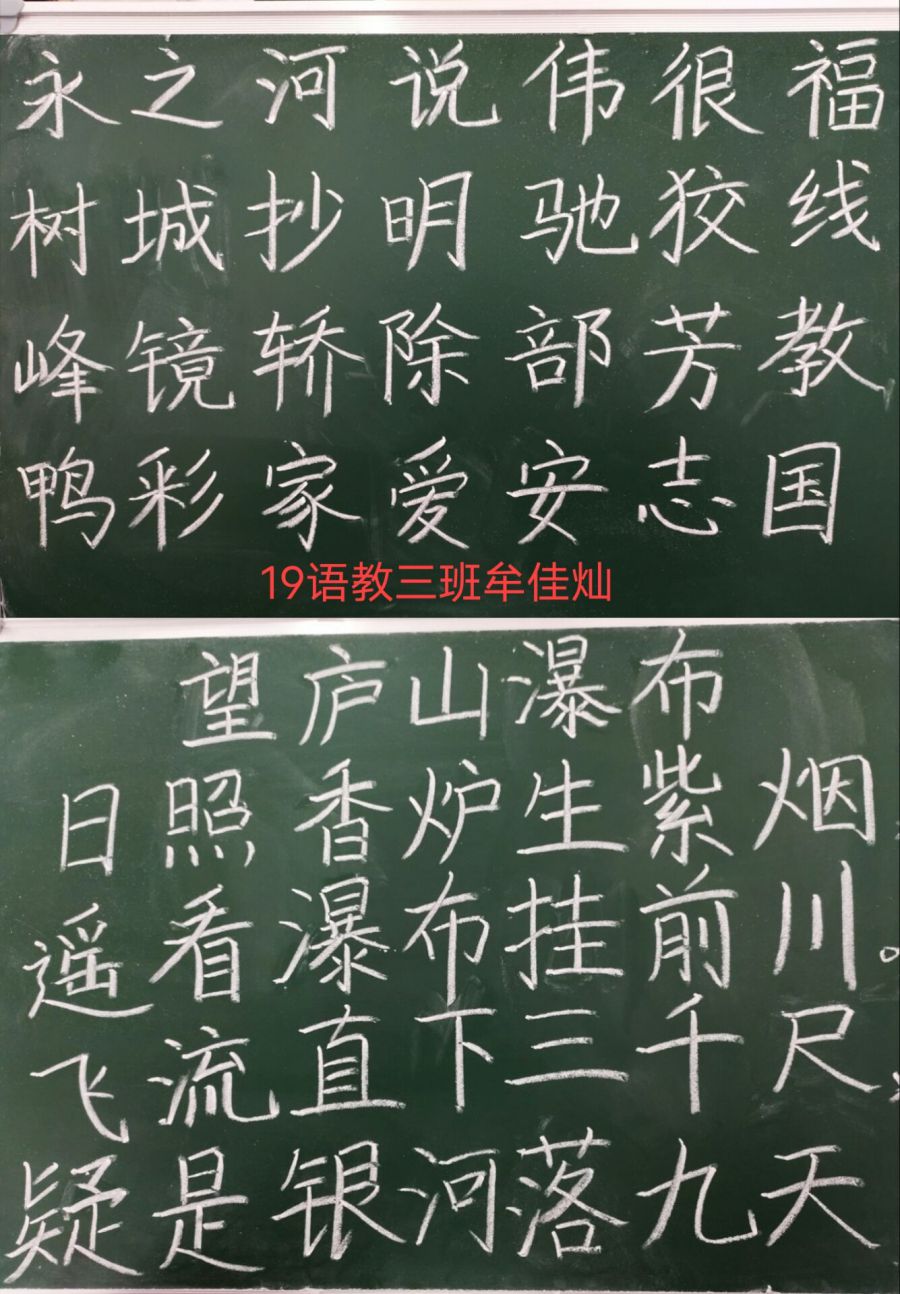 永之河说伟很福
树城抄明驰狡线
峰镜轿除部芳教
鸭彩家爱安志国
19语教三班牟佳灿
望庐山瀑布
日照香炉生紫烟,
遥看瀑布挂前川。
飞流直下三千尺,
疑是银河落九天